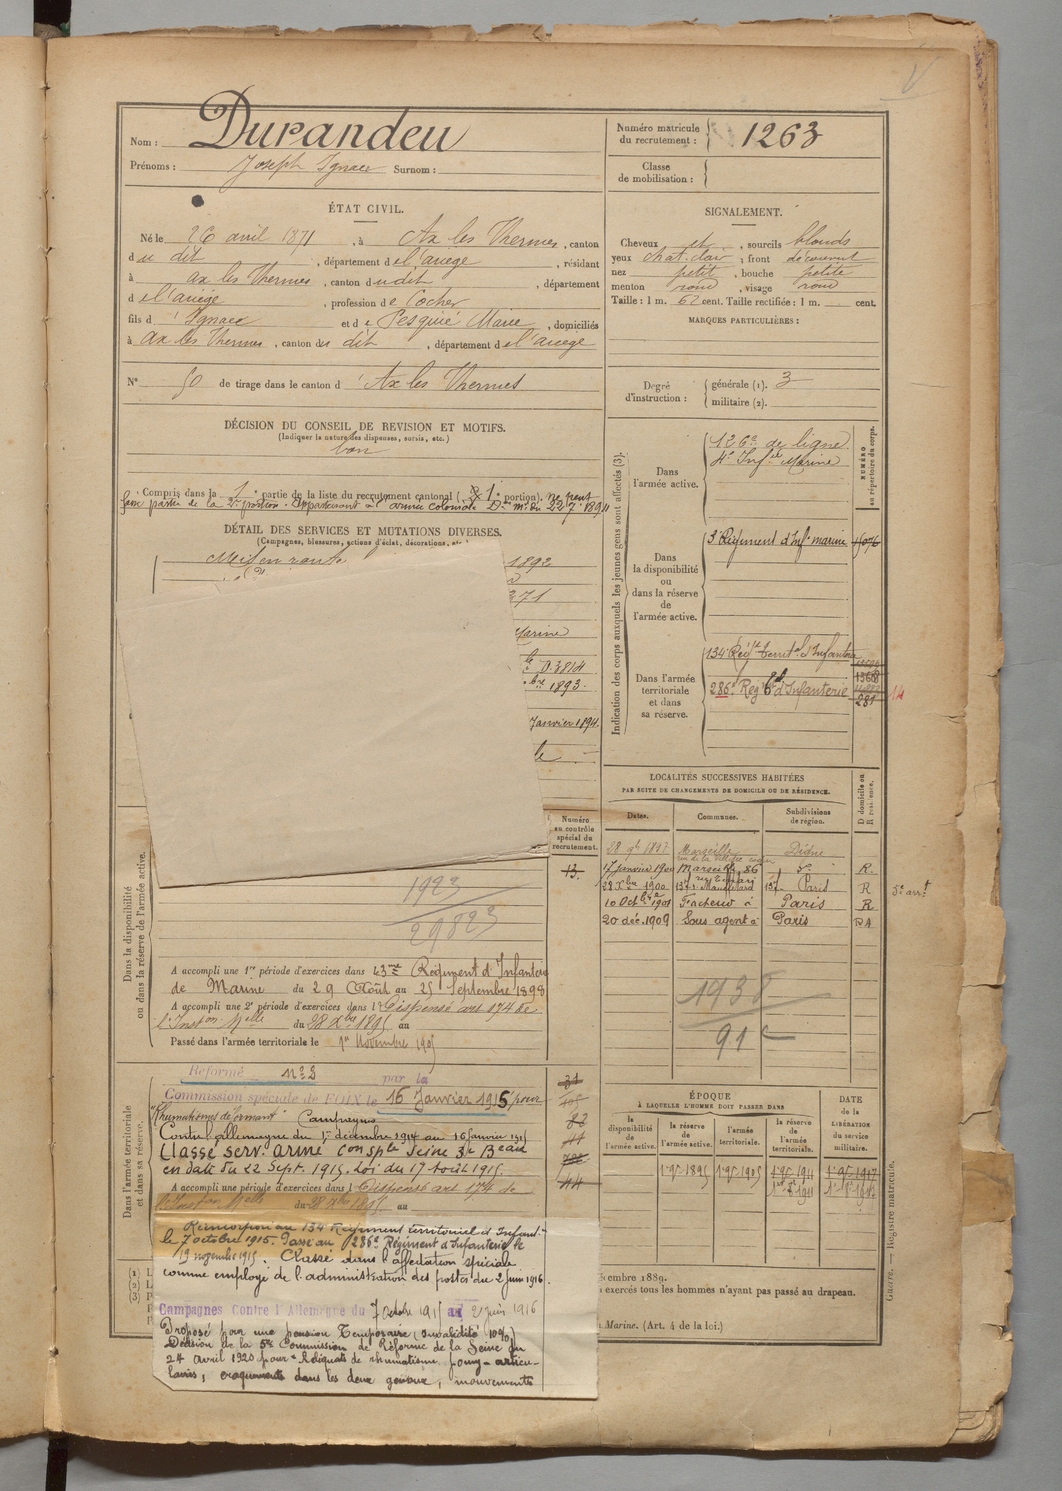 Nom : Durandeu
Prénoms : Joseph Ignace Surnom :
Numéro matricule du recrutement : 1263
Classe de mobilisation :
ÉTAT CIVIL.
Né le 26 avril 1871, à Ax les Thermes, canton
du dit, département de l'ariège, résidant
à ax les Thermes, canton du dit, département
de l'ariège, profession de Cocher
fils d' Ignace et de Pesquié Marie, domiciliés
à Ax les Thermes, canton du dit, département de l'ariège
N° 50 de tirage dans le canton d' Ax les Thermes
SIGNALEMENT.
Cheveux et, sourcils blonds
yeux chat. clair, front découvert
nez petit, bouche petite
menton rond, visage rond
Taille : 1 m. 62 cent. Taille rectifiée : 1 m. cent.
MARQUES PARTICULIÈRES :
Degré d'instruction : générale (1). 3
militaire (2).
DÉCISION DU CONSEIL DE REVISION ET MOTIFS.
(Indiquer la nature des dispenses, sursis, etc.)
bon
Compris dans la 1e partie de la liste du recrutement cantonal ( 1e portion). ne peut
faire partie de la 2e portion. Appartenant à l'armée coloniale
DÉTAIL DES SERVICES ET MUTATIONS DIVERSES.
(Campagnes, blessures, actions d'éclat, décorations, etc.
Mis en route
1892
271
Marine
D. 3814
bre 1893.
Janvier 1894.
Indication des corps auxquels les jeunes gens sont affectés (3).
NUMÉRO au répertoire du corps.
Dans l'armée active.
126e de ligne
4e Infie Marine
Dans la disponibilité ou dans la réserve de l'armée active.
3 Régiment d'Infie marine 4076
Dans l'armée territoriale et dans sa réserve.
134 Régt territal d'Infanterie
1368
286e Reg d'Infanterie
281
14
LOCALITÉS SUCCESSIVES HABITÉES
PAR SUITE DE CHANGEMENTS DE DOMICILE OU DE RÉSIDENCE.
Dates. Communes. Subdivisions de région. D domicile ou R résidence.
Marseille Digne
17 janvier 1900 Marseille, 86 R.
28 Xbre 1900 Paris R 5e arrt
10 Octbre 1901 Facteur à Paris R
20 déc. 1909 Sous agent à Paris RA
1938
91
Numéro au contrôle spécial du recrutement.
13.
Dans la disponibilité ou dans la réserve de l'armée active.
1923
29823
A accompli une 1re période d'exercices dans 43me Régiment d'Infanterie
de Marine du 29 Août au 25 Septembre 1898
A accompli une 2e période d'exercices dans l Dispensé art 174 de
l'Inston Melle du 28 Xbre 1895 au
Passé dans l'armée territoriale le 1er Novembre 1905
Dans l'armée territoriale et dans sa réserve.
Réformé n° 2 par la
Commission spéciale de FOIX le 16 Janvier 1915 pour
"Rhumatismes déformant" Campagnes
Contre l'allemagne du 1er décembre 1914 au 16 janvier 1915
Classé serv. armé Con sple Seine 3e Beau
en date du 22 Sept. 1915. Loi du 17 août 1915.
A accompli une période d'exercices dans l Dispensé art 174 de
l'Inston Melle du 28 Xbre 1895 au
44
Réincorporé au 134 Régiment territorial d'Infant.
le 7 octobre 1915. Passé au 286e Régiment d'Infanterie le
19 novembre 1915. Classé dans l'affectation spéciale
comme employé de l'administration des postes du 2 juin 1916.
Campagnes Contre l'Allemagne du 7 octobre 1915 au 2 juin 1916
Proposé pour une pension temporaire (invalidité 10%)
Décision de la 5e Commission de Réforme de la Seine du
24 avril 1920 pour "Reliquats de rhumatisme poly-articu-
laires, craquements dans les deux genoux, mouvements
ÉPOQUE
À LAQUELLE L'HOMME DOIT PASSER DANS
DATE de la LIBÉRATION du service militaire.
la disponibilité de l'armée active. la réserve de l'armée active. l'armée territoriale. la réserve de l'armée territoriale.
1er 9bre 1895 1er 9bre 1905 1er 9bre 1911 1er 9bre 1917
embre 1889.
exercés tous les hommes n'ayant pas passé au drapeau.
Marine. (Art. 4 de la loi.)
Guerre. — Registre matricule.